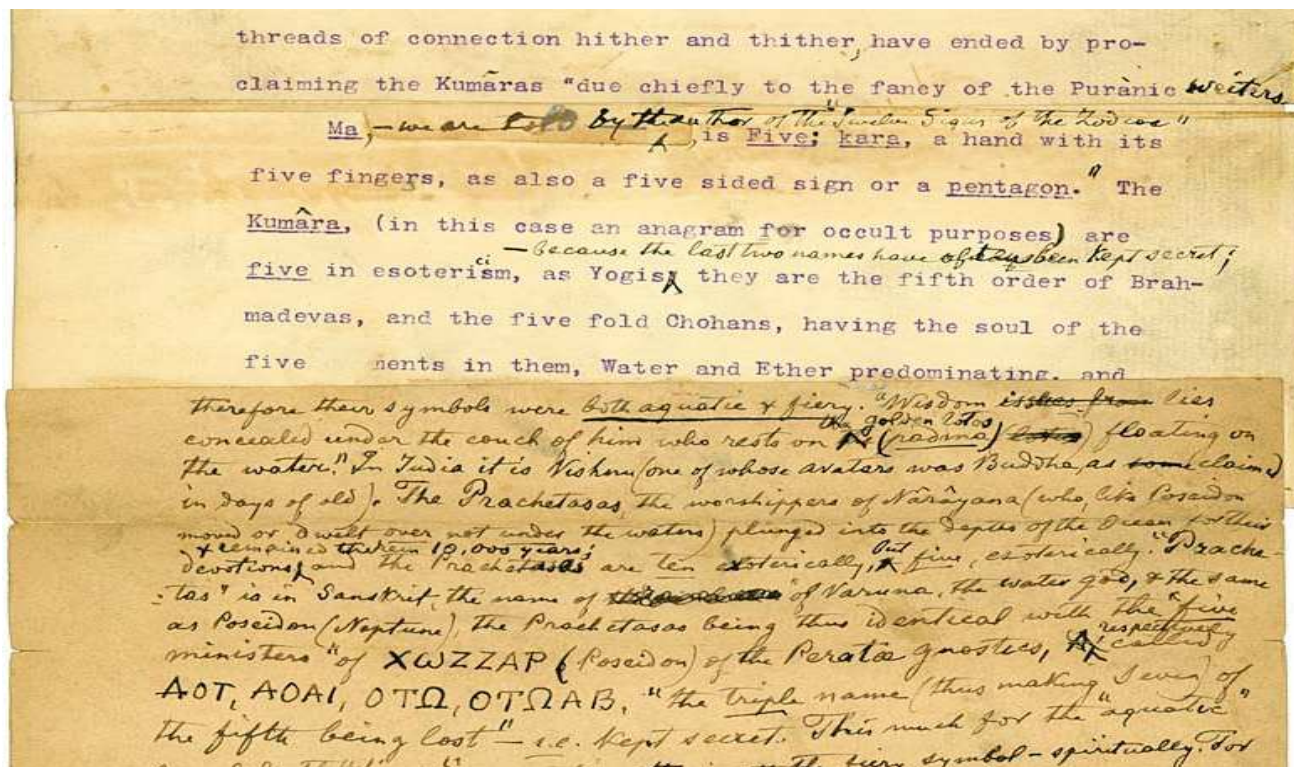 threads of connection hither and thither, have ended by pro-
claiming the Kumāras "due chiefly to the fancy of the Purànic writers
Ma, — we are told by the author of the "Twelve Signs of the Zodiac"
, is Five; kara, a hand with its
five fingers, as also a five sided sign or a pentagon." The
Kumâra, (in this case an anagram for occult purposes) are
— because the last two names have been kept secret;
five in esotericism, as Yogis, they are the fifth order of Brah-
madevas, and the five fold Chohans, having the soul of the
five ments in them, Water and Ether predominating, and
therefore their symbols were both aquatic & fiery. "Wisdom issues from lies
the golden lotos
concealed under the couch of him who rests on (padma) floating on
the water." In India it is Vishnu (one of whose avatars was Buddha, as some claimed
in days of old). The Prachetasas, the worshippers of Nârâyana (who, like Poseidon
moved or dwelt over not under the waters) plunged into the depths of the Ocean for their
& remained therein 10,000 years;
devotions, and the Prachetasas are ten exoterically, but five, esoterically. "Prache-
-tas" is in Sanskrit, the name of of Varuna, the water god, & the same
as Poseidon (Neptune), the Prachetasas being thus identical with the "five
respectively
ministers" of ΧΩΖΖΑΡ (Poseidon) of the Peratae gnostics, called
ΑΟΤ, ΑΟΑΙ, ΟΤΩ, ΟΤΩΑΒ, "the triple name (thus making seven) of
the fifth being lost" — i.e. kept secret. This much for the "aquatic"
fiery symbol — spiritually. For